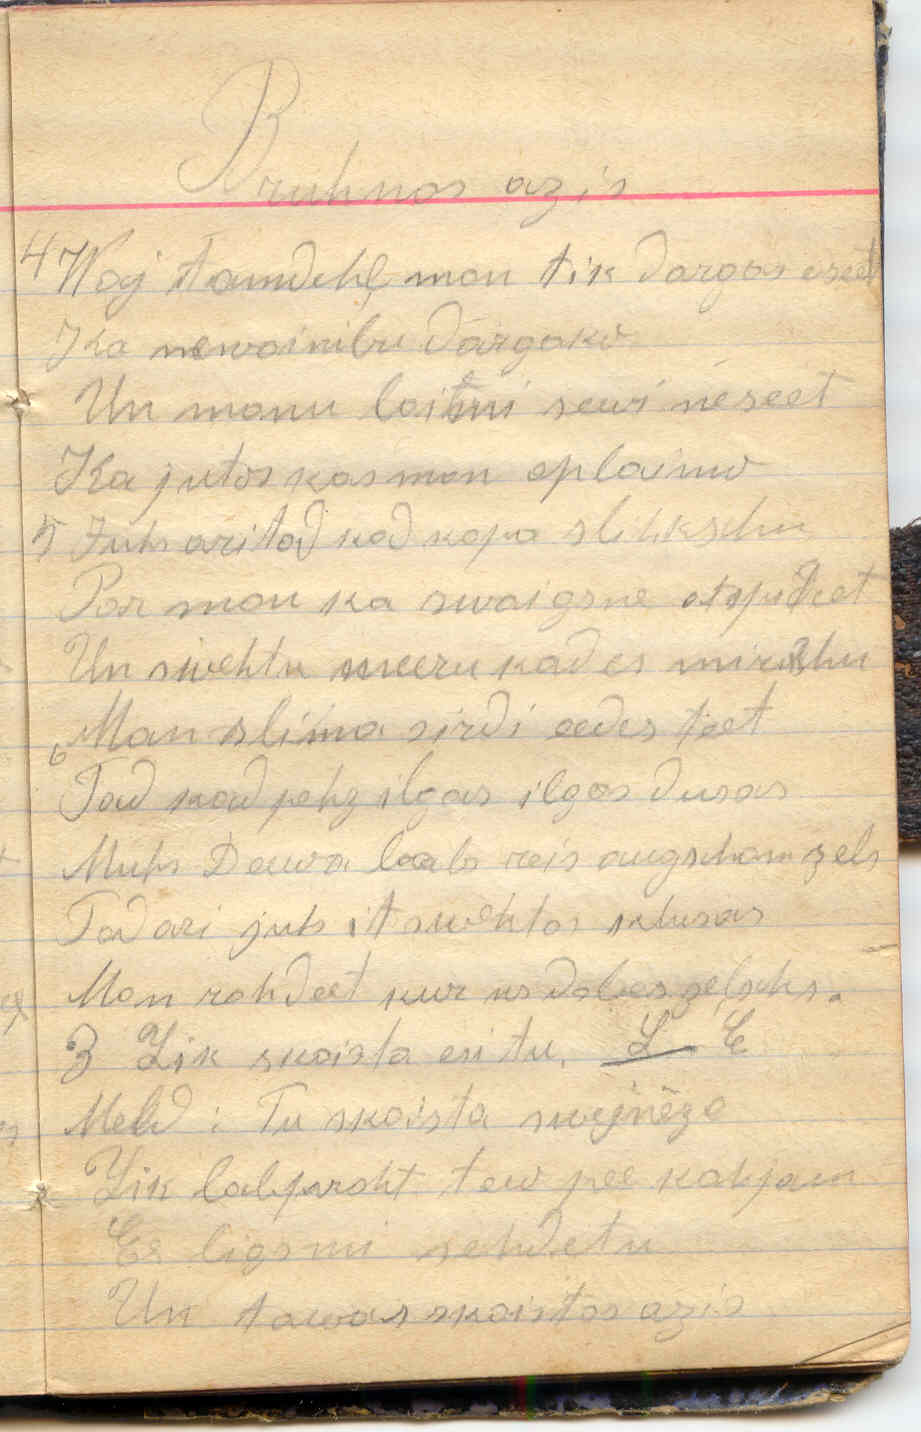 Bruhnas azis
4 Waj tamdehļ man tik dargas eseet
Ka newainibu dārgako
Un manu laimi sewi neseet
Ka jutos kas man aplaimo
5 Juhs arī tad kad kapa slihkschu
Par man ka swaigsne atspihdeet
Un swehtu meeru kad es mirschu
Man slima sirdi eedeseet
6 Tad kad pehz ilgas ilgas dusas
Muhs Deewa baals reis augscham zels
Tad ari juhs it swehtos klusas
Man rahdeet kur us dabes zelsch.
3 Zik skaista esi tu. L. E
Meld : Tu skaista swejnēze
Zik labpraht tew pee kahjam
Es ligsmi sehdetu
Un tawas skaistas azis